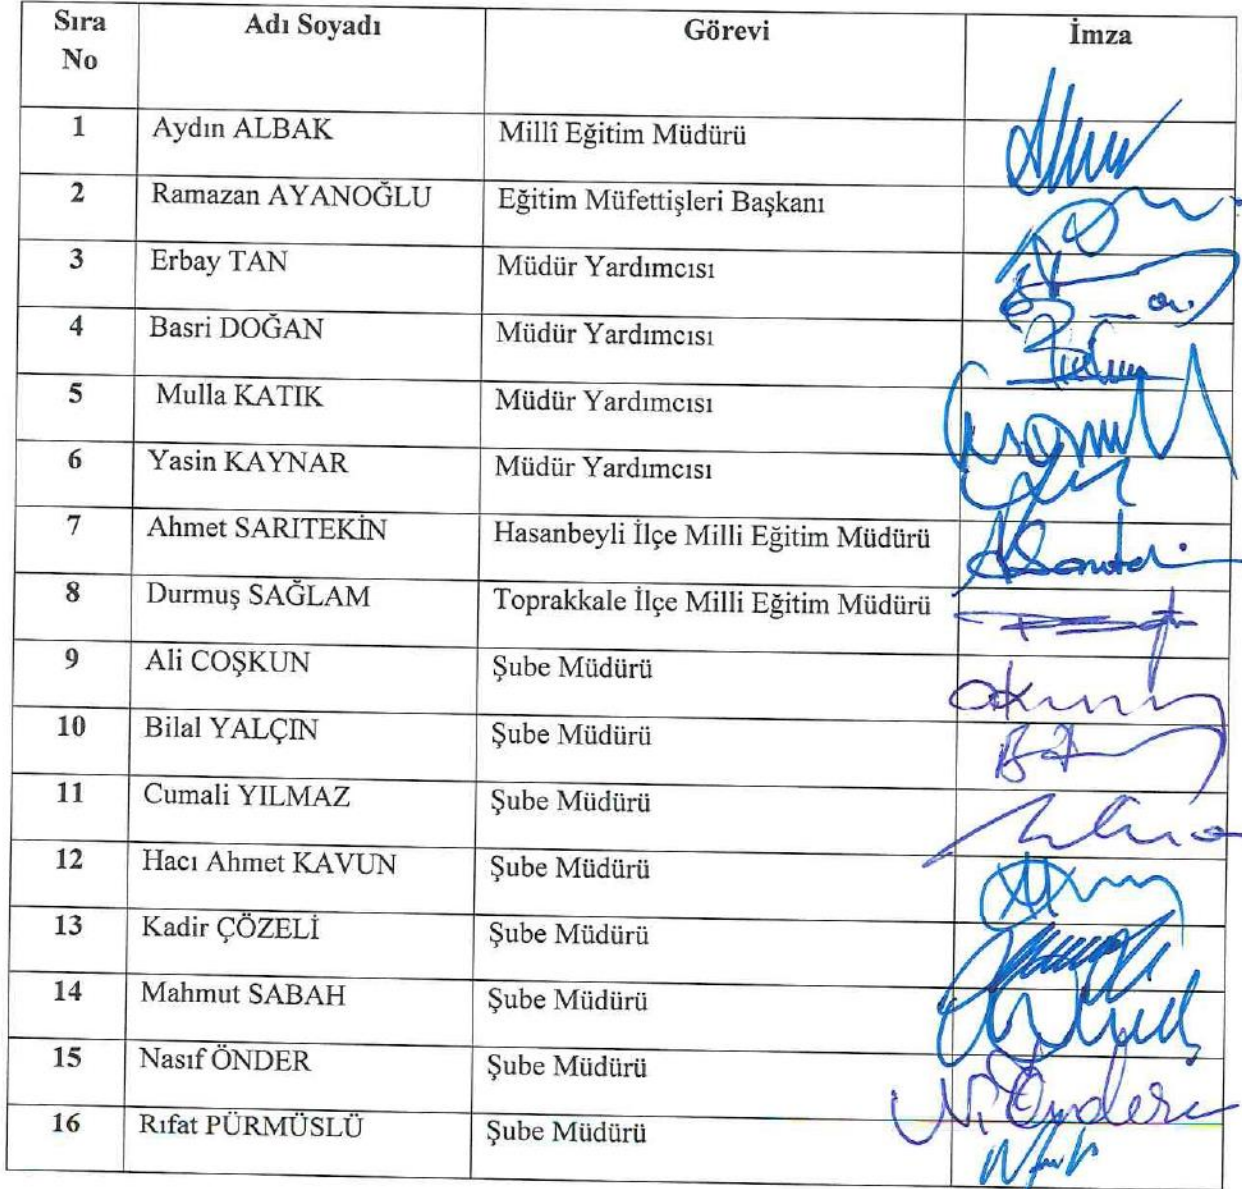 Sıra No Adı Soyadı Görevi İmza
1 Aydın ALBAK Millî Eğitim Müdürü
2 Ramazan AYANOĞLU Eğitim Müfettişleri Başkanı
3 Erbay TAN Müdür Yardımcısı
4 Basri DOĞAN Müdür Yardımcısı
5 Mulla KATIK Müdür Yardımcısı
6 Yasin KAYNAR Müdür Yardımcısı
7 Ahmet SARITEKİN Hasanbeyli İlçe Milli Eğitim Müdürü
8 Durmuş SAĞLAM Toprakkale İlçe Milli Eğitim Müdürü
9 Ali COŞKUN Şube Müdürü
10 Bilal YALÇIN Şube Müdürü
11 Cumali YILMAZ Şube Müdürü
12 Hacı Ahmet KAVUN Şube Müdürü
13 Kadir ÇÖZELİ Şube Müdürü
14 Mahmut SABAH Şube Müdürü
15 Nasıf ÖNDER Şube Müdürü N. Önder
16 Rıfat PÜRMÜSLÜ Şube Müdürü